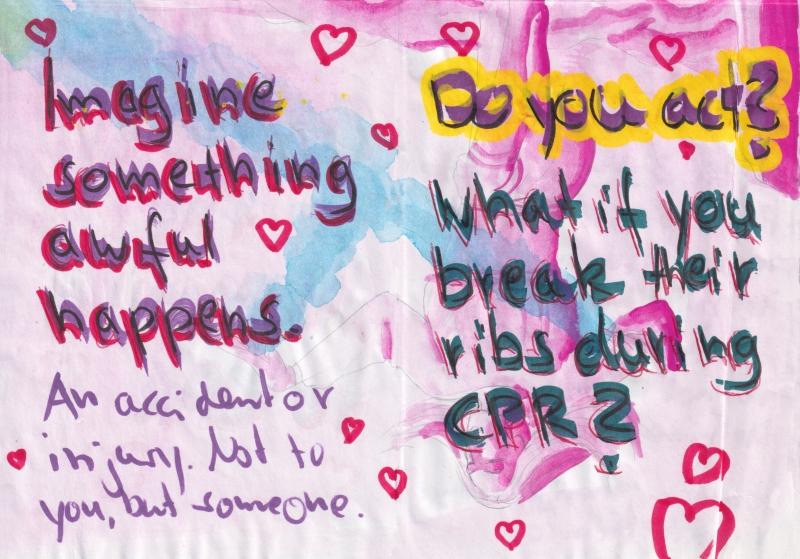 Imagine
something
awful
happens.
An accident or
injury. Not to
you, but someone.
Do you act?
What if you
break their
ribs during
CPR?